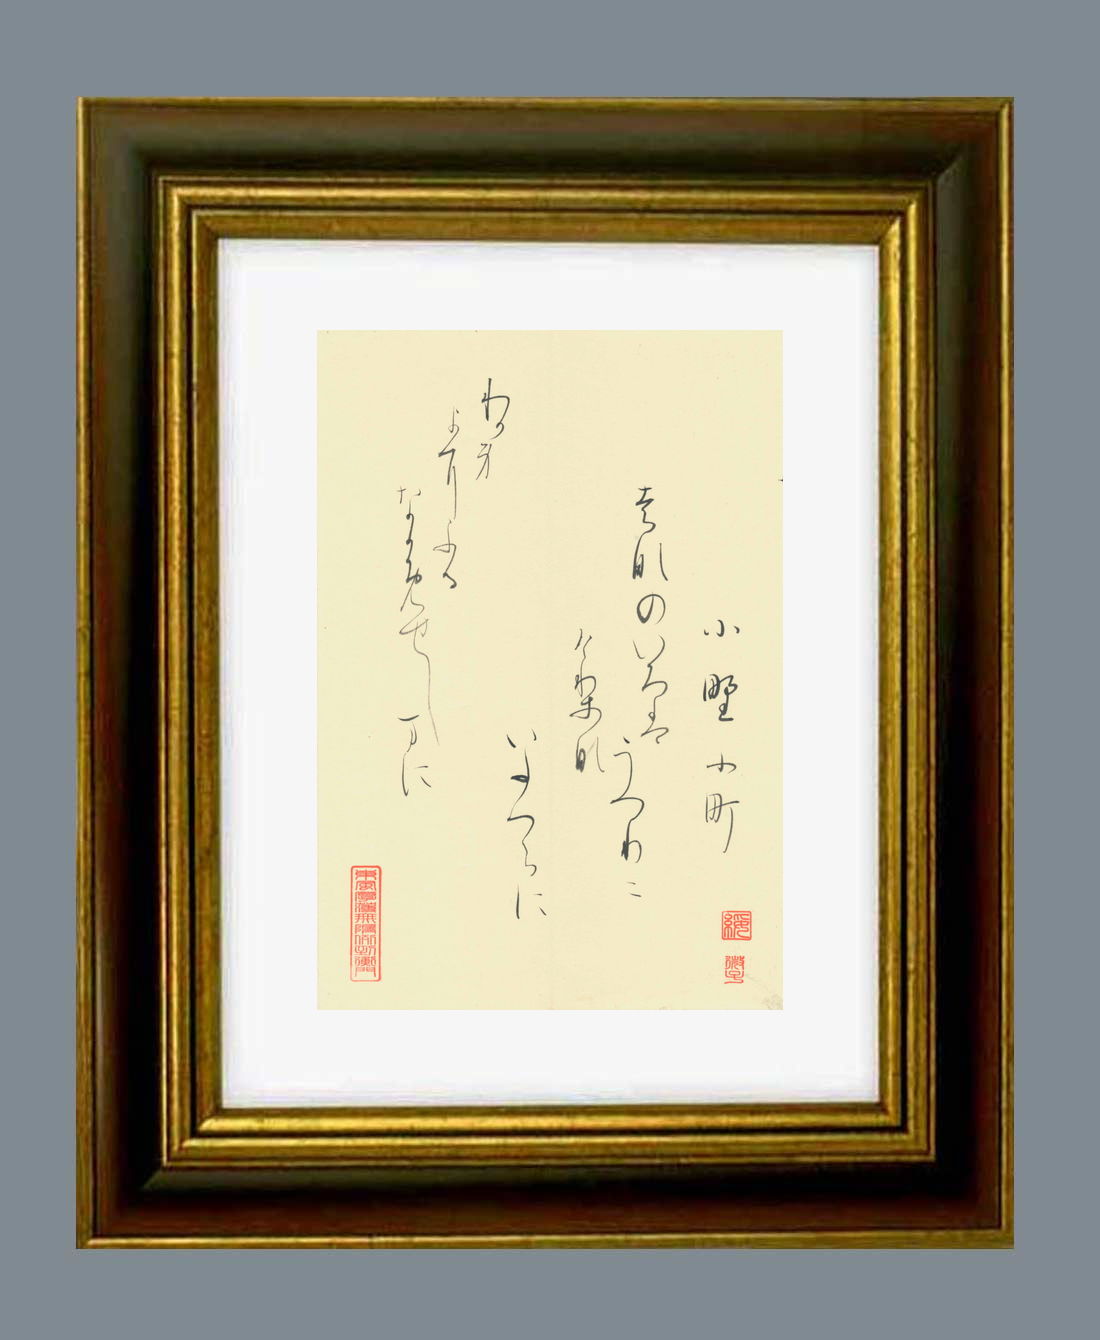 小野小町
者那のいろは
うつりに
介梨那
いたつらに
わか身
よ耳ふる
なかめせし万に